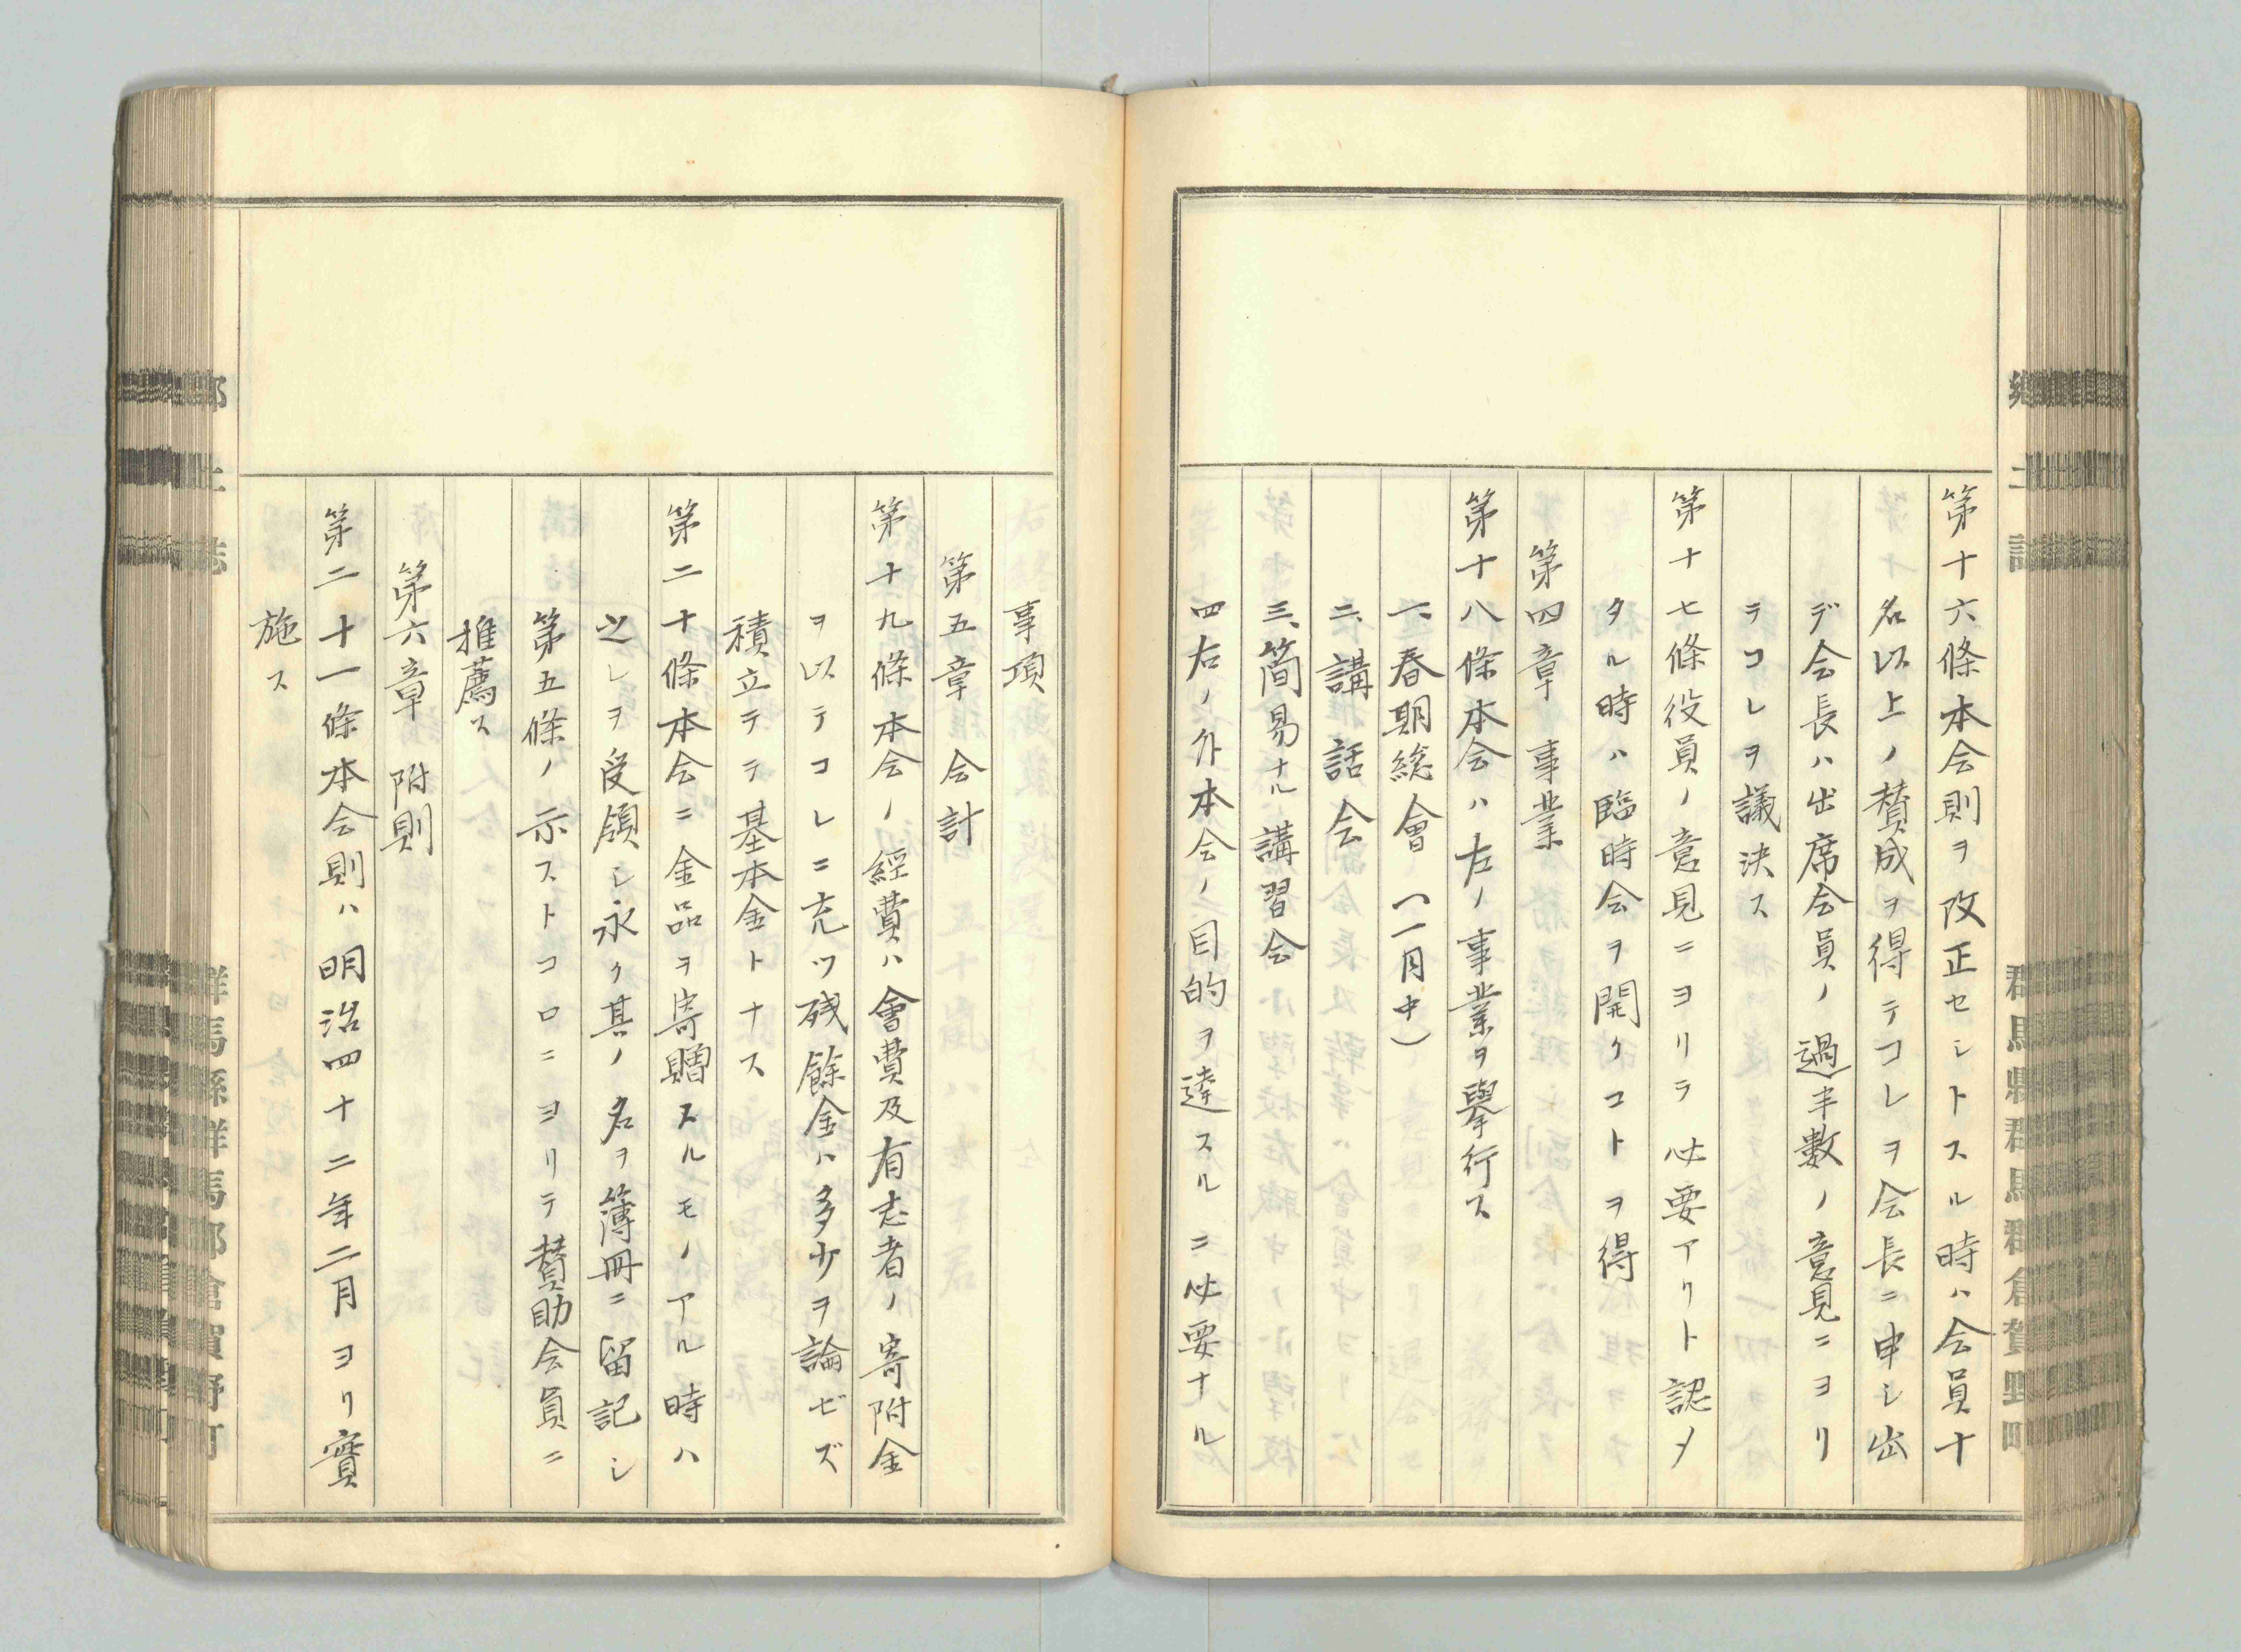 第十六條本会則ヲ改正セシトスル時ハ会員十
名以上ノ賛成ヲ得テコレヲ会長ニ申シ出
デ会長ハ出席会員ノ過半數ノ意見ニヨリ
テコレヲ議決ス
第十七條役員ノ意見ニヨリテ必要アリト認メ
タル時ハ臨時会ヲ開クコトヲ得
第四章 事業
第十八條本会ハ左ノ事業ヲ擧行ス
一、春期総會(一月中)
二、講話会
三、簡易ナル講習会
四右ノ外本会ノ目的ヲ達スルニ必要ナル
事項
第五章 会計
第十九條本会ノ經費ハ會費及有志者ノ寄附金
ヲ以テコレニ充ツ残餘金ハ多少ヲ論ゼズ
積立テテ基本金トナス
第二十條本会ニ金品ヲ寄贈スルモノアル時ハ
之レヲ受領シ永ク其ノ名ヲ簿冊ニ留記シ
第五條ノ示ストコロニヨリテ賛助会員ニ
推薦ス
第六章 附則
第二十一條本会則ハ明治四十二年二月ヨリ實
施ス
郷土誌
群馬縣群馬郡倉賀野町